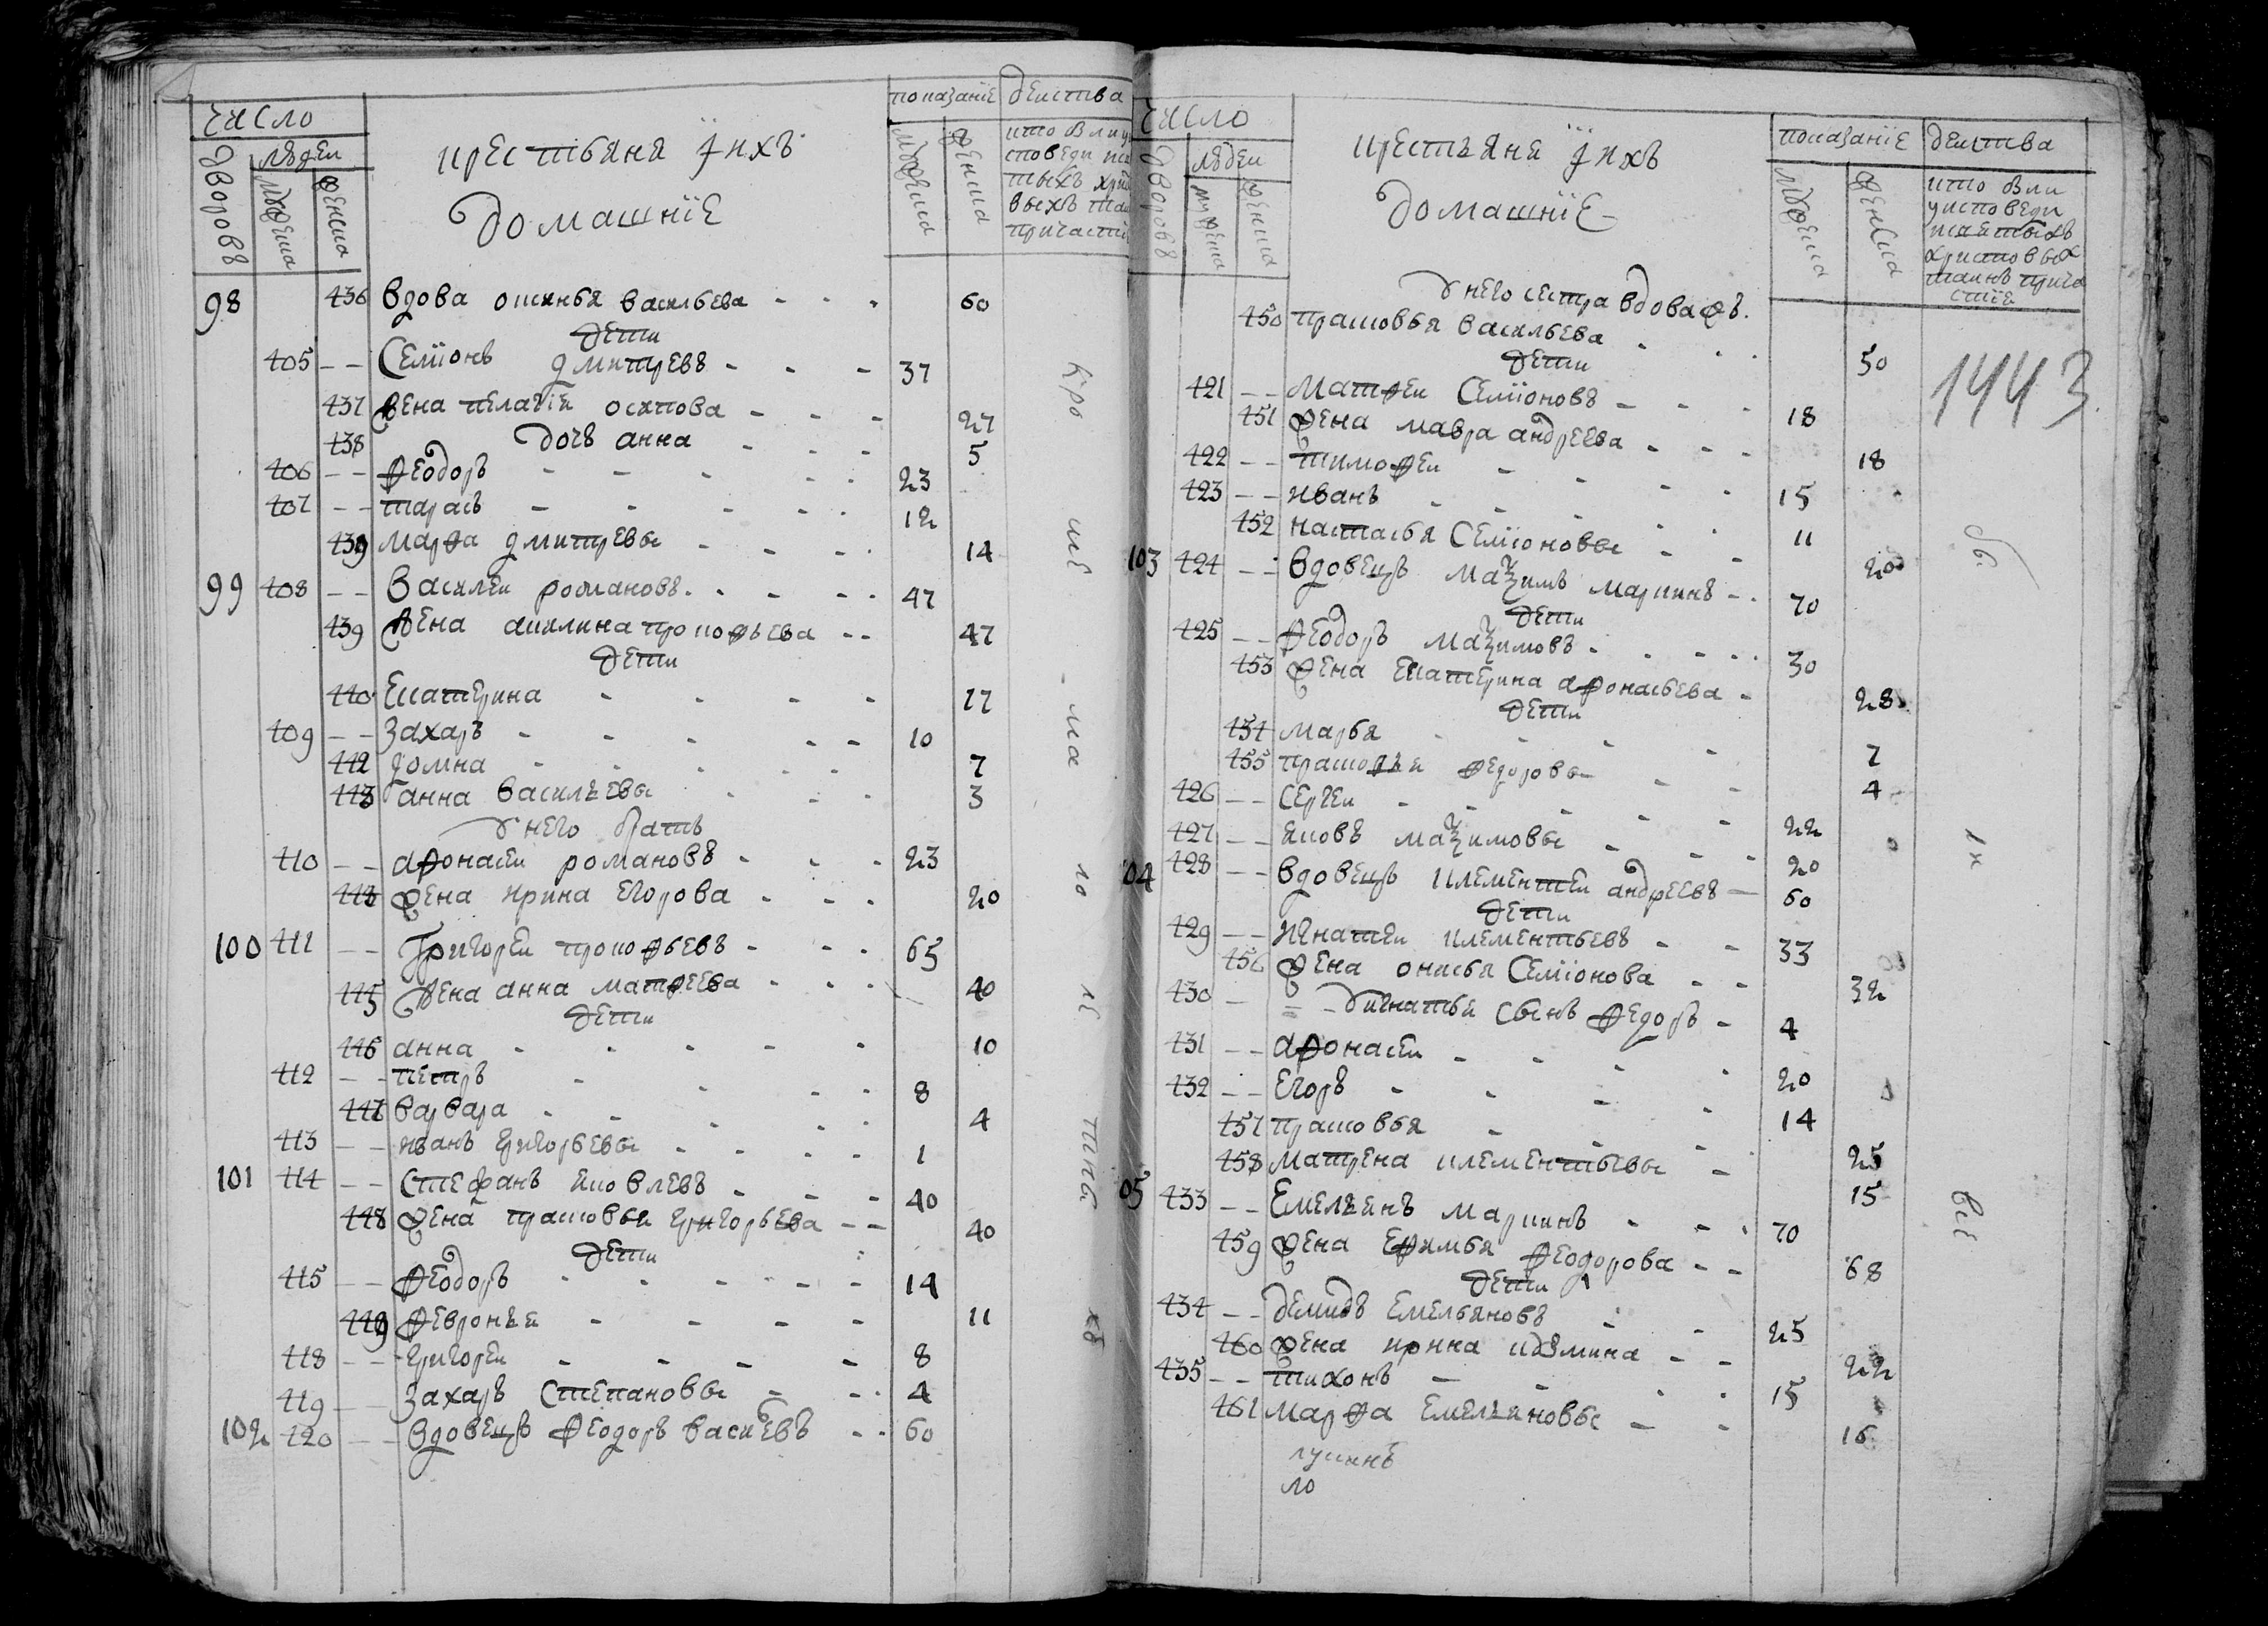 число
дворовъ
людеи
мужеска
женска
крестьяня и ихъ
домашние
показание
мужеска
женска
деиства
кто были у
споведи и св
тыхъ хрис
выхъ таи
причасти
98 436 вдова оксинья васильева - - - 60
дети
405 - - Семионъ дмитревъ - - - 37
437 жена пелагея осипова - - - 27
438 дочь анна - - - 5
406 - - Феодоръ - - - - 23
407 - - тарасъ - - - - 12
439 марфа дмитревы - - - 14
99 408 - - Василеи романовъ - - - 47
439 жена акилина прокофьева - - 47
дети
440 Екатерина - - - - 17
409 - - Захаръ - - - - 10
442 домна - - - - 7
443 анна василъевы - - - 3
у него братъ
410 - - афонасеи романовъ - - - 23
443 жена ирина Егорова - - - 20
100 411 - - Григореи прокофьевъ - - - 65
445 жена анна матфеева - - - 40
дети
446 анна - - - - 10
412 - - петръ - - - - 8
447 варвара - - - - 4
413 - - иванъ григорьевы - - - - 1
101 414 - - Стефанъ яковлевъ - - - 40
448 жена прасковья григорьева - - 40
дети
415 - - Феодоръ - - - - 14
449 Февронья - - - - 11
418 - - григореи - - - - 8
419 - - Захаръ Степановы - - - 4
102 420 - - вдовецъ Феодоръ васиевъ - - 60
число
дворовъ
людеи
мужеска
женска
крестьяня и ихъ
домашние
показание
мужеска
женска
деиства
кто были
у исповеди
и святыхъ
христовых
таинъ прича
стие
1443
у него сестра вдова жъ
450 прасковья васильева - - - 50
дети
421 - - Матфеи Семионовъ - - - 18
451 жена мавра андреева - - - 18
422 - - тимофеи - - - - 15
423 - - иванъ - - - - 11
452 настасья Семионовы - - 20
103 424 - - вдовецъ маѯимъ маркинъ - - 70
дети
425 - - Феодоръ маѯимовъ - - - 30
453 жена Екатерина афонасьева - 28
дети
454 марья - - - - 7
455 прасковья федоровы - - 4
426 - - Сергеи - - - - 22
427 - - яковъ маѯимовы - - - 20
04 428 - - вдовецъ клементеи андреевъ - 60
дети
429 - - игнатеи клементьевъ - - 33
456 жена онисья Семионова - - 32
430 - = - у игнатья сынъ Федоръ - 4
431 - - афонасеи - - - - 20
432 - - Егоръ - - - - 14
457 прасковья - - - 25
458 матрена клементьевы - 15
05 433 - - Емельянъ маркинъ - - - 70
459 жена Ефимья Феодорова - - 68
дети
434 - - демидъ Емельяновъ - - 25
460 жена ирина кузмина - - 22
435 - - тихонъ - - - - 15
461 марфа Емельяновы - - 16
ло